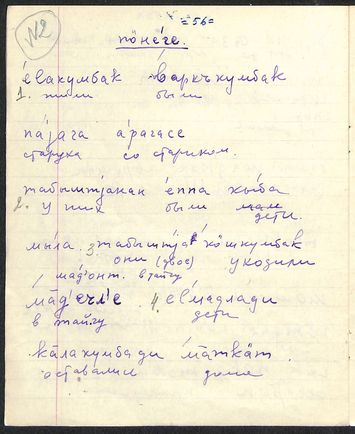 №2
= 56 =
пöне́ге.
е́вакумбак ва́ркъкумбак
1. жили были
па́jага а́рагасе
старуха со стариком.
табыштjакан е́ппа кы́ба
2. у них были дети.
мы́ла. 3. табыштjа кöшкумбак
они (двое) уходили
мад'онт. в тайгу
ма̄д'ечле 4 е́лмадла́ди
в тайгу дети
ка̄лакумбади ма̄тка̄т.
оставались дома